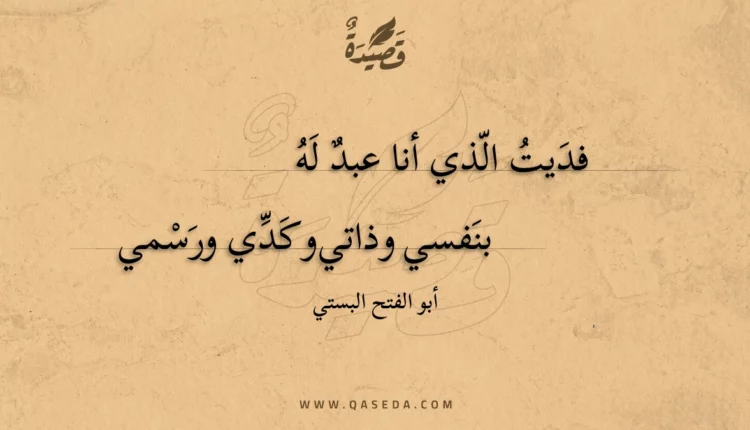 قَصِيْدَةٌ
فدَيتُ الّذي أنا عبدٌ لَهُ
بنَفسي وذاتي وكَدِّي ورَسْمي
أبو الفتح البستي
WWW.QASEDA.COM